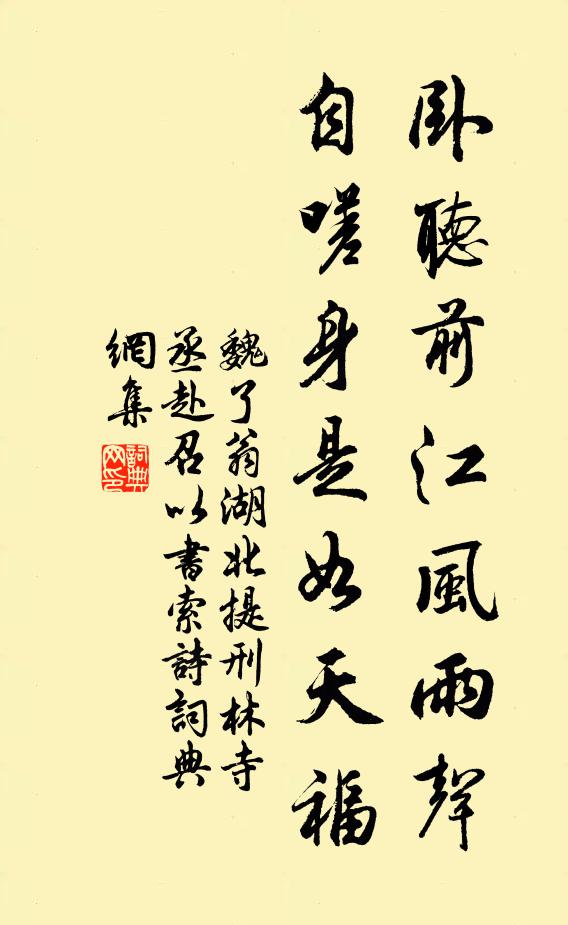 臥聽前江風雨聲
自嗟身是如天福
魏了翁湖北提刑林寺
丞赴召以書索詩詞典
網集
詞典網印